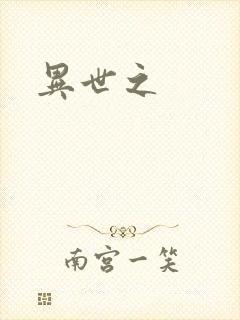 異世之
南宫一笑